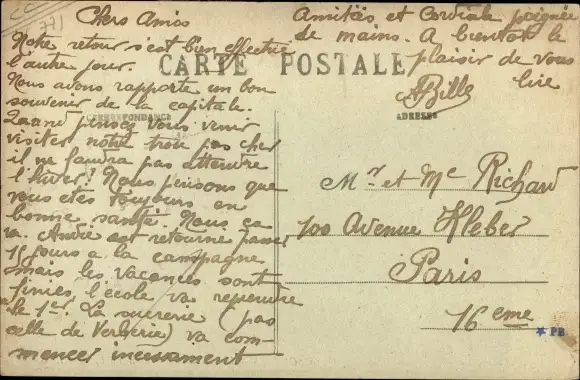 771
Chers Amis
Notre retour s'est bien effectué
l'autre jour.
Nous avons rapporté un bon
souvenir de la capitale.
Quand pensez vous venir
visiter notre trou pas cher
il ne faudra pas attendre
l'hiver! Nous pensons que
vous etes toujours en
bonne santé. Nous ca
va. André est retourné passer
15 jours a la campagne
mais les vacances sont
finies, l'école va reprendre
le 1er. La sucrerie (pas
celle de Verberie) va com-
mencer incessament
Amitiés et Cordiale poignée
de mains. A bientot le
plaisir de vous
lire
ABille
CARTE POSTALE
CORRESPONDANCE
ADRESSE
Mr et Me Richard
100 Avenue Kleber
Paris
16 eme
PB